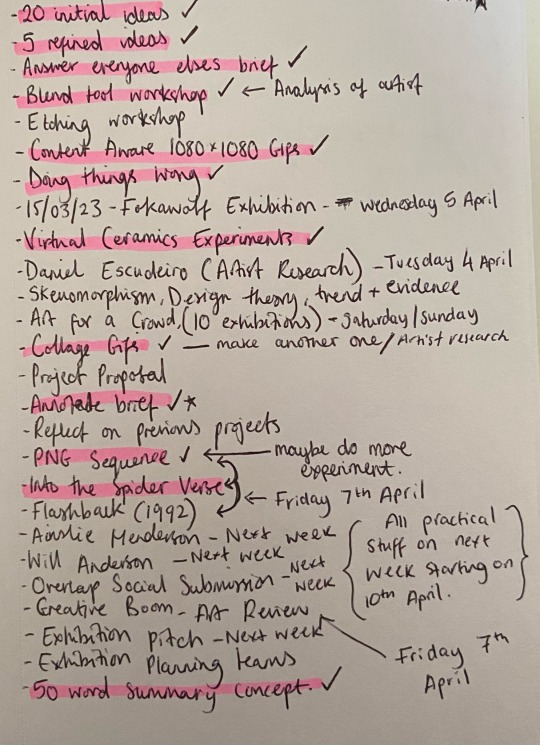 - 20 initial ideas ✓
- 5 refined ideas ✓
- Answer everyone elses brief ✓
- Blend tool workshop ✓ ← Analysis of artist
- Etching workshop
- Content Aware 1080 × 1080 Gifs ✓
- Doing things wrong ✓
- 15/03/23 - Fokawolf Exhibition - Wednesday 5 April
- Virtual Ceramics Experiments ✓
- Daniel Escudeiro (Artist Research) - Tuesday 4 April
- Skeuomorphism, Design theory, trend + evidence
- Art for a Crowd, (10 exhibitions) - Saturday/Sunday
- Collage Gifs ✓ — make another one/Artist research
- Project Proposal
- Annotate brief ✓ *
- Reflect on previous projects
- PNG Sequence ✓ ← maybe do more
experiment.
- Into the Spider Verse
- Flashback (1992) ← Friday 7th April
- Ainslie Henderson - Next week
- Will Anderson - Next week
- Overlap Social Submission - Next week
- Creative Boom - Art Review
- Exhibition Pitch - Next week
- Exhibition Planning teams
- 50 word Summary Concept. ✓
All practical
stuff on next
week starting on
10th April.
Friday 7th
April